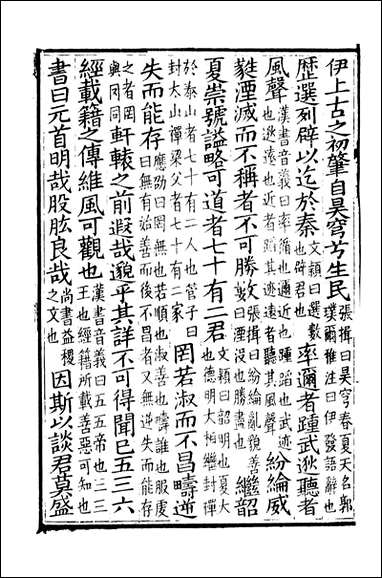 伊上古之初肇自昊穹兮生民張揖曰昊穹春夏天名郭璞爾雅注曰伊發語辭也
歷選列辟以迄於秦文穎曰選數也辟君也率邇者踵武逖聽者
風聲漢書音義曰率循也邇近也踵蹈也武迹也逖遠也近者蹈其迹遠者聽其風聲紛綸威
蕤湮滅而不稱者不可勝數張揖曰紛綸亂貌善曰湮沒也勝盡也繼韶
夏崇號謚略可道者七十有二君文穎曰韶明也夏大也德明大相繼封禪
於泰山者七十有二人也管子曰封太山禪梁父者七十有二家罔若淑而不昌疇逆
失而能存應劭曰罔無也若順也淑善也疇誰也服虔曰無有始善而後不昌者又無逆失而能存
之者罔與罔同軒轅之前遐哉邈乎其詳不可得聞已五三六
經載籍之傳維風可觀也漢書音義曰五五帝也三三王也經籍所載善惡可知也
書曰元首明哉股肱良哉尚書益稷之文也因斯以談君莫盛